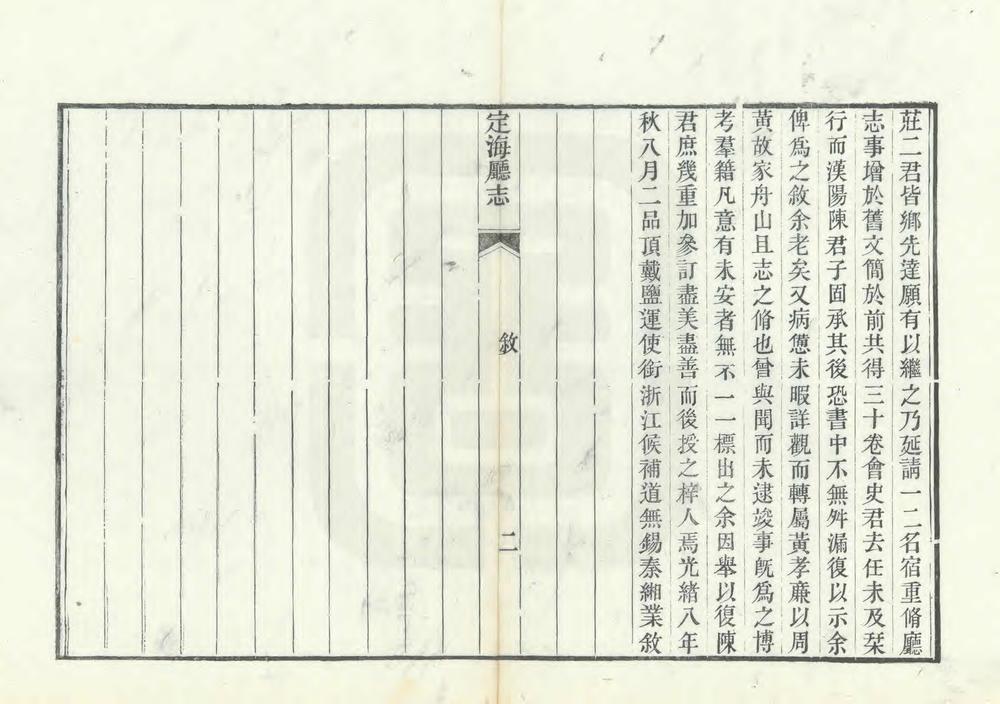 莊二君皆鄉先達願有以繼之乃延請一二名宿重脩廳
志事增於舊文簡於前共得三十卷會史君去任未及栞
行而漢陽陳君子固承其後恐書中不無舛漏復以示余
俾爲之敘余老矣又病憊未暇詳觀而轉屬黃孝廉以周
黃故家舟山且志之脩也曾與聞而未逮竣事旣爲之博
考羣籍凡意有未安者無不一一標出之余因舉以復陳
君庶幾重加參訂盡美盡善而後授之梓人焉光緒八年
秋八月二品頂戴鹽運使銜浙江候補道無錫秦緗業敘
定海廳志
敘
二